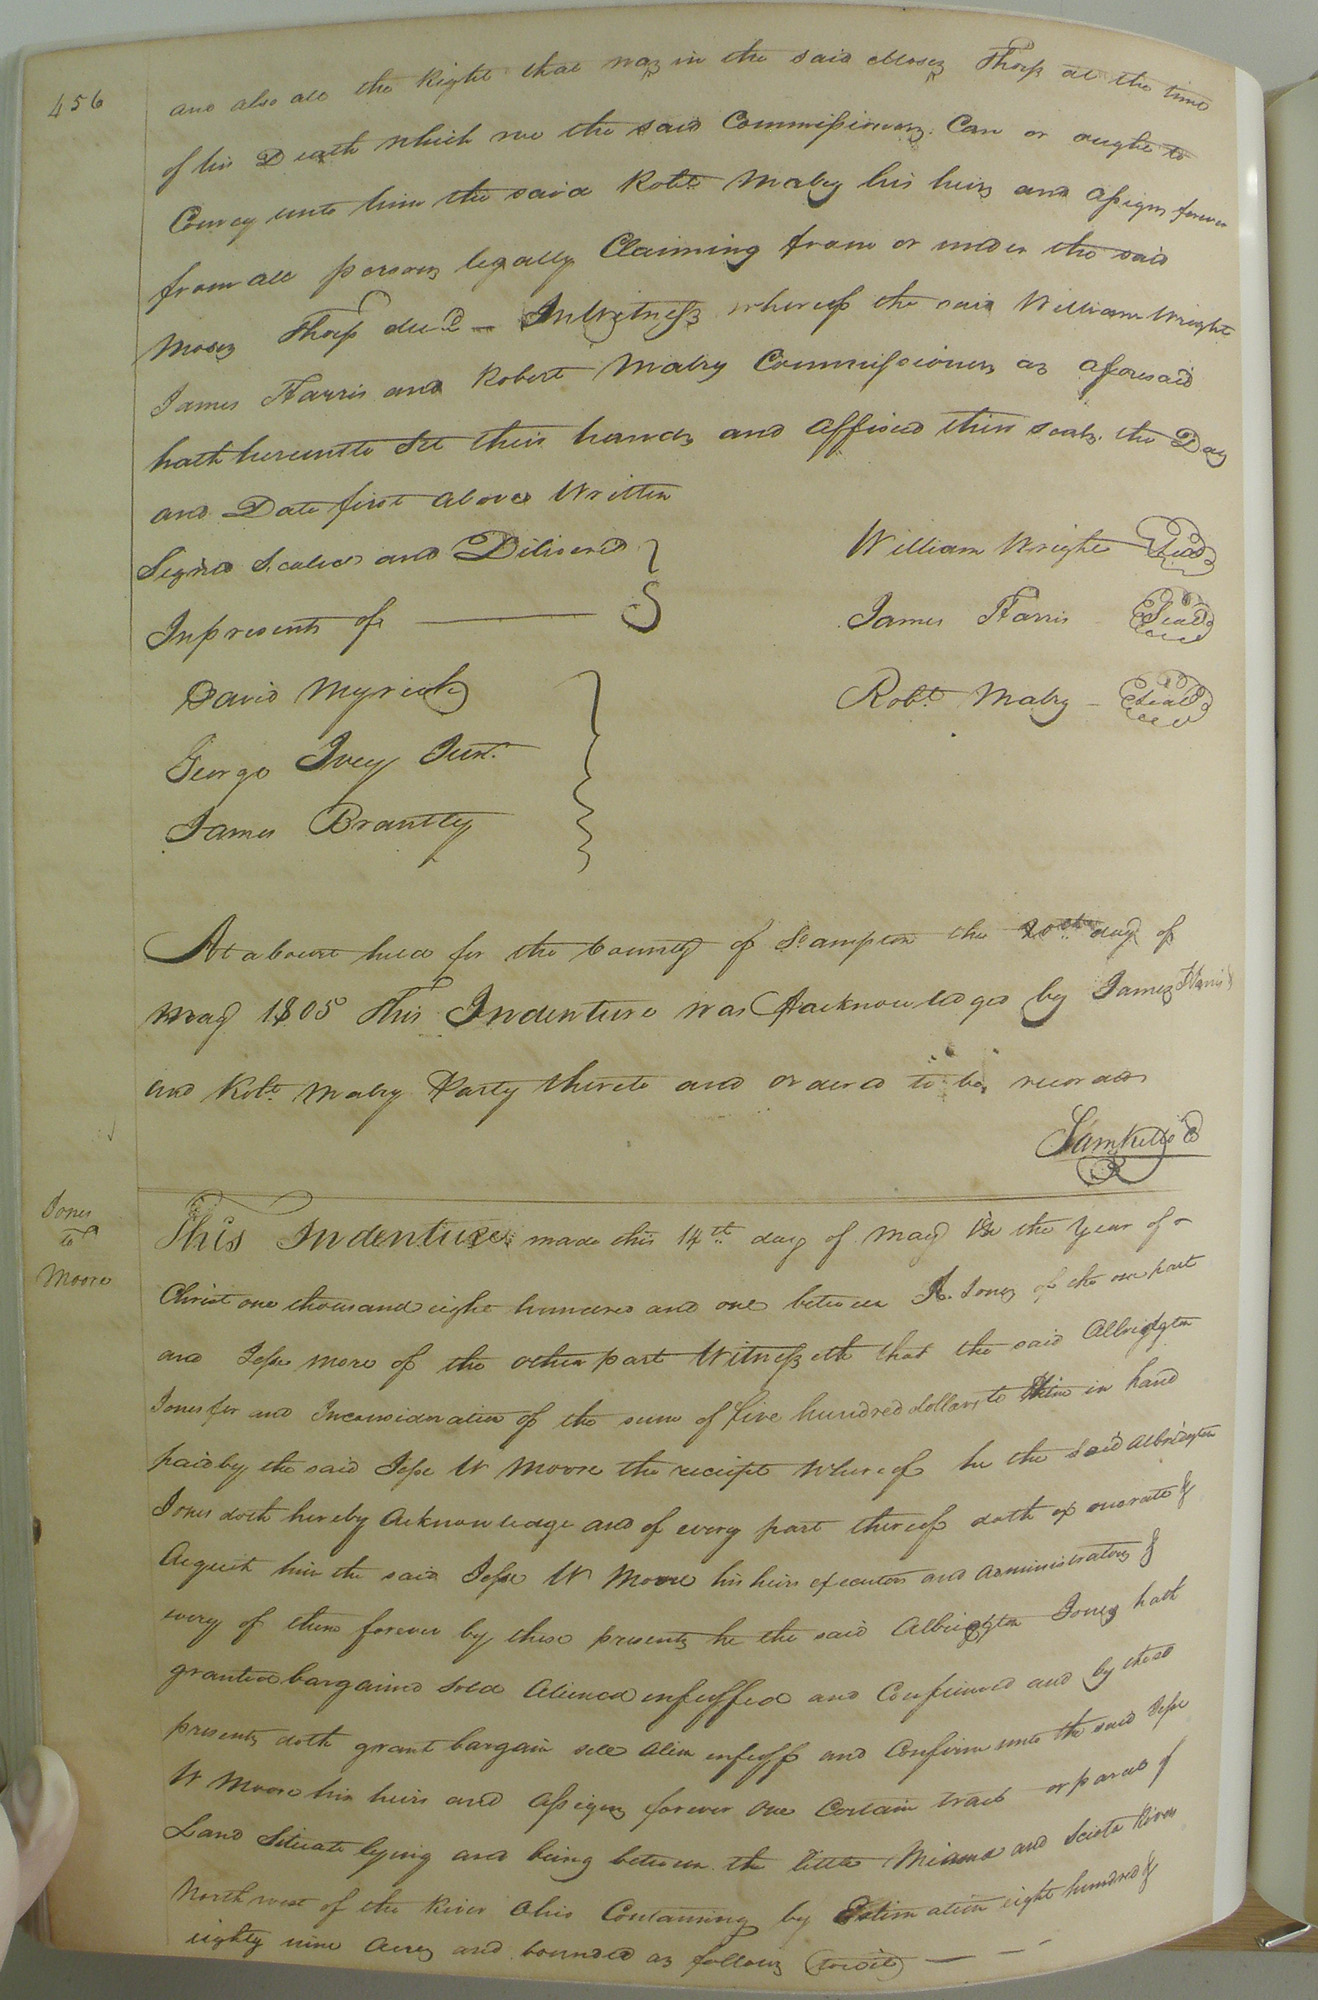 456
and also all the Right that was in the said Moses Thorp at the time
of his Death which we the said Commissioners Can or ought to
Convey unto him the said Robt. Mabry his heirs and assigns forever
from all persons legally Claiming from or under the said
Moses Thorp decd. — In Witness whereof the said William Wright
James Harris and Robert Mabry Commissioners as aforesaid
hath hereunto Set their hands and affixed their seals the Day
and Date first above Written
Signed Sealed and Delivered
In presents of
William Wright Seal
James Harris Seal
Robt. Mabry – Seal
David Myrick
George Ivey Junr.
James Brantly
At a Court held for the County of So.ampton the 20th day of
May 1805 This Indenture was Acknowledged by James Harris
and Robt. Mabry Party thereto and ordered to be recorded
Sam Kello C
Jones
to
Moore
This Indenture made this 14th day of May in the Year of
Christ one thousand eight hundred and one between A. Jones of the one part
and Jesse more of the other part Witnesseth that the said Albridgton
Jones for and Inconsideration of the sum of five hundred dollars to him in hand
paid by the said Jesse W Moore the receipt Whereof he the said Albridgton
Jones doth hereby Acknowledge and of every part thereof doth exonerate &
Acquit him the said Jesse W Moore his heirs executors and administrators &
every of them forever by these presents he the said Albridgton Jones hath
granted bargained sold Aliened enfeoffed and Confirmed and by these
presents doth grant bargain sell Alien enfeoff and Confirm unto the said Jesse
W Moore his heirs and Assigns forever One Certain tract or parcel of
Land Situate lying and being between the little Miama and Sciota River
North west of the River Ohio Containing by Estimation eight hundred &
eighty nine Acres and bounded as follows (towit) — — —